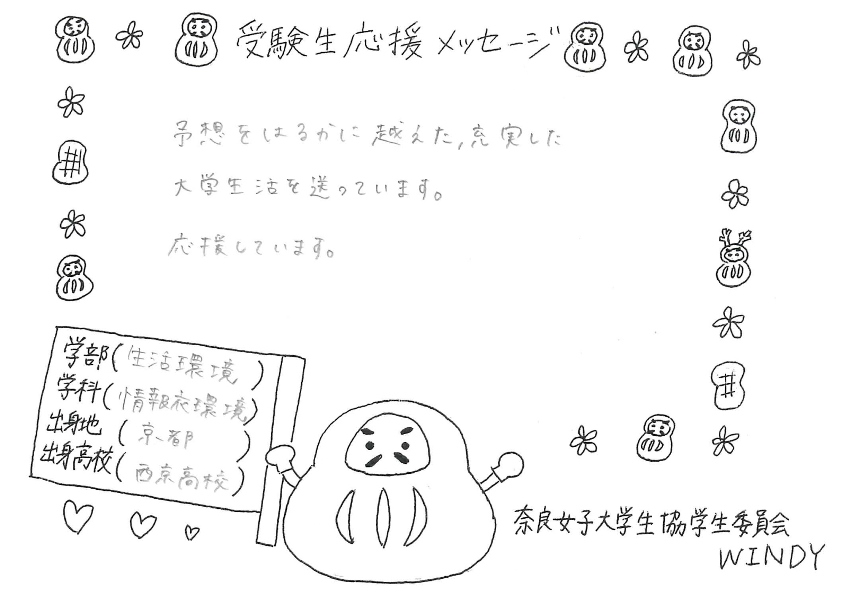 受験生応援メッセージ
予想をはるかに越えた,充実した
大学生活を送っています。
応援しています。
学部(生活環境)
学科(情報衣環境)
出身地(京都)
出身高校(西京高校)
奈良女子大学生協学生委員会
WINDY